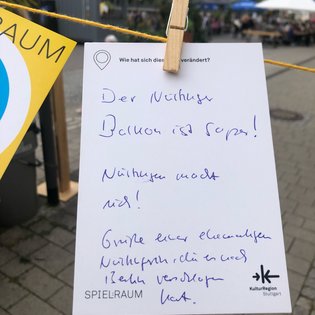 RAUM
Wie hat sich dies verändert?
Der Nürtinger
Balkon ist super!
Nürtingen macht
sich!
Grüße einer ehemaligen
die es nach
Berlin verschlagen
hat.
SPIELRAUM
KulturRegion
Stuttgart